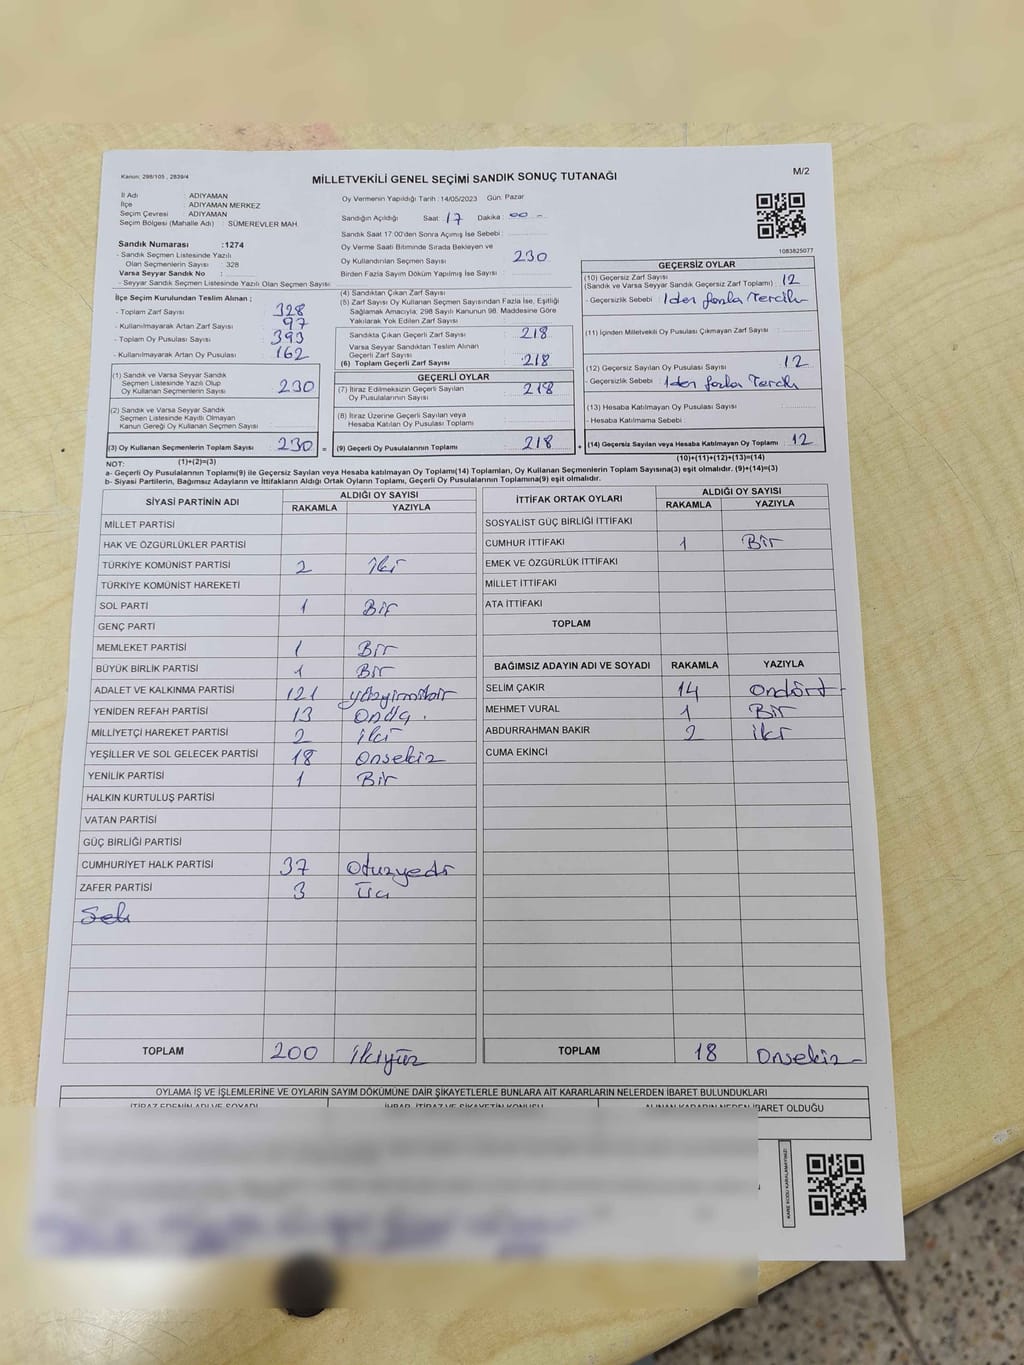 Kanun: 298/105 , 2839/4
MİLLETVEKİLİ GENEL SEÇİMİ SANDIK SONUÇ TUTANAĞI
M/2
İl Adı : ADIYAMAN
İlçe : ADIYAMAN MERKEZ
Seçim Çevresi : ADIYAMAN
Seçim Bölgesi (Mahalle Adı) : SÜMEREVLER MAH.
Sandık Numarası :1274
- Sandık Seçmen Listesinde Yazılı
Olan Seçmenlerin Sayısı : 328
Varsa Seyyar Sandık No :
- Seyyar Sandık Seçmen Listesinde Yazılı Olan Seçmen Sayısı
İlçe Seçim Kurulundan Teslim Alınan ;
- Toplam Zarf Sayısı 328
- Kullanılmayarak Artan Zarf Sayısı 97
- Toplam Oy Pusulası Sayısı 393
- Kullanılmayarak Artan Oy Pusulası 162
(1) Sandık ve Varsa Seyyar Sandık
Seçmen Listesinde Yazılı Olup
Oy Kullanan Seçmenlerin Sayısı 230
(2) Sandık ve Varsa Seyyar Sandık
Seçmen Listesinde Kayıtlı Olmayan
Kanun Gereği Oy Kullanan Seçmen Sayısı
(3) Oy Kullanan Seçmenlerin Toplam Sayısı 230
(1)+(2)=(3)
Oy Vermenin Yapıldığı Tarih : 14/05/2023 Gün: Pazar
Sandığın Açıldığı Saat: 17 Dakika : 00 -
Sandık Saat 17:00'den Sonra Açımış İse Sebebi :
Oy Verme Saati Bitiminde Sırada Bekleyen ve
Oy Kullandırılan Seçmen Sayısı 230
Birden Fazla Sayım Döküm Yapılmış İse Sayısı :
(4) Sandıktan Çıkan Zarf Sayısı
(5) Zarf Sayısı Oy Kullanan Seçmen Sayısından Fazla İse, Eşitliği
Sağlamak Amacıyla; 298 Sayılı Kanunun 98. Maddesine Göre
Yakılarak Yok Edilen Zarf Sayısı
Sandıkta Çıkan Geçerli Zarf Sayısı : 218
Varsa Seyyar Sandıktan Teslim Alınan
Geçerli Zarf Sayısı
(6) Toplam Geçerli Zarf Sayısı : 218
GEÇERLİ OYLAR
(7) İtiraz Edilmeksizin Geçerli Sayılan
Oy Pusulası Sayısı : 218
(8) İtiraz Üzerine Geçerli Sayılan veya
Hesaba Katılan Oy Pusulası Toplamı
= (9) Geçerli Oy Pusulalarının Toplamı : 218 +
1083825077
GEÇERSİZ OYLAR
(10) Geçersiz Zarf Sayısı
(Sandık ve Varsa Seyyar Sandık Geçersiz Zarf Toplamı) : 12
- Geçersizlik Sebebi : 1den fazla Tercih
(11) İçinden Milletvekili Oy Pusulası Çıkmayan Zarf Sayısı :
(12) Geçersiz Sayılan Oy Pusulası Sayısı 12
- Geçersizlik Sebebi : 1den fazla Tercih
(13) Hesaba Katılmayan Oy Pusulası Sayısı
- Hesaba Katılmama Sebebi :
(14) Geçersiz Sayılan veya Hesaba Katılmayan Oy Toplamı : 12
(10)+(11)+(12)+(13)=(14)
NOT:
a- Geçerli Oy Pusulalarının Toplamı(9) ile Geçersiz Sayılan veya Hesaba katılmayan Oy Toplamı(14) Toplamları, Oy Kullanan Seçmenlerin Toplam Sayısına(3) eşit olmalıdır. (9)+(14)=(3)
b- Siyasi Partilerin, Bağımsız Adayların ve İttifakların Aldığı Ortak Oyların Toplamı, Geçerli Oy Pusulalarının Toplamına(9) eşit olmalıdır.
SİYASİ PARTİNİN ADI ALDIĞI OY SAYISI
RAKAMLA YAZIYLA
MİLLET PARTİSİ
HAK VE ÖZGÜRLÜKLER PARTİSİ
TÜRKİYE KOMÜNİST PARTİSİ 2 iki
TÜRKİYE KOMÜNİST HAREKETİ
SOL PARTİ 1 Bir
GENÇ PARTİ
MEMLEKET PARTİSİ 1 Bir
BÜYÜK BİRLİK PARTİSİ 1 Bir
ADALET VE KALKINMA PARTİSİ 121 yüzyirmibir
YENİDEN REFAH PARTİSİ 13
MİLLİYETÇİ HAREKET PARTİSİ 2 iki
YEŞİLLER VE SOL GELECEK PARTİSİ 18 Onsekiz
YENİLİK PARTİSİ 1 Bir
HALKIN KURTULUŞ PARTİSİ
VATAN PARTİSİ
GÜÇ BİRLİĞİ PARTİSİ
CUMHURİYET HALK PARTİSİ 37 Otuzyedi
ZAFER PARTİSİ 3 Üç
TOPLAM 200 ikiyüz
İTTİFAK ORTAK OYLARI ALDIĞI OY SAYISI
RAKAMLA YAZIYLA
SOSYALİST GÜÇ BİRLİĞİ İTTİFAKI
CUMHUR İTTİFAKI 1 Bir
EMEK VE ÖZGÜRLÜK İTTİFAKI
MİLLET İTTİFAKI
ATA İTTİFAKI
TOPLAM
BAĞIMSIZ ADAYIN ADI VE SOYADI RAKAMLA YAZIYLA
SELİM ÇAKIR 14 Ondört
MEHMET VURAL 1 Bir
ABDURRAHMAN BAKIR 2 iki
CUMA EKİNCİ
TOPLAM 18 Onsekiz
OYLAMA İŞ VE İŞLEMLERİNE VE OYLARIN SAYIM DÖKÜMÜNE DAİR ŞİKAYETLERLE BUNLARA AİT KARARLARIN NELERDEN İBARET BULUNDUKLARI
İTİRAZ EDENİN ADI VE SOYADI İHBAR, İTİRAZ VE ŞİKAYETİN KONUSU ALINAN KARARIN NEDEN İBARET OLDUĞU
KARE KODU KARALAMAYINIZ!